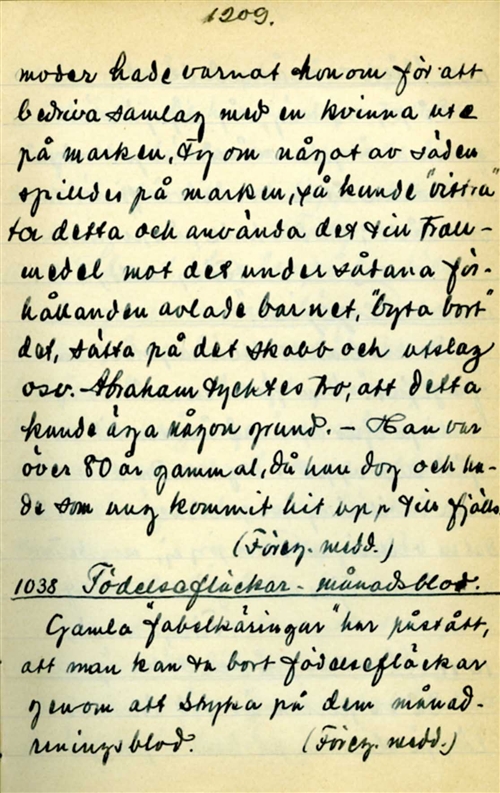 1209.
moder hade varnat honom för att
bedriva samlag med en kvinna ute
på marken, ty om något av säden
spilldes på marken, så kunde "vittra"
ta detta och använda det till troll-
medel mot det under sådana för-
hållanden avlade barnet, "byta bort"
det, sätta på det skabb och utslag
osv. Abraham tycktes tro, att detta
kunde äga någon grund. – Han var
över 80 år gammal, då han dog och ha-
de som ung kommit hit upp till fjälls.
(Föreg. medd.)
1038 Födelsefläckar - månadsblod.
Gamla "fabelkäringar" har påstått,
att man kan ta bort födelsefläckar
genom att stryka på dem månad-
reningsblod. (Föreg. medd.)